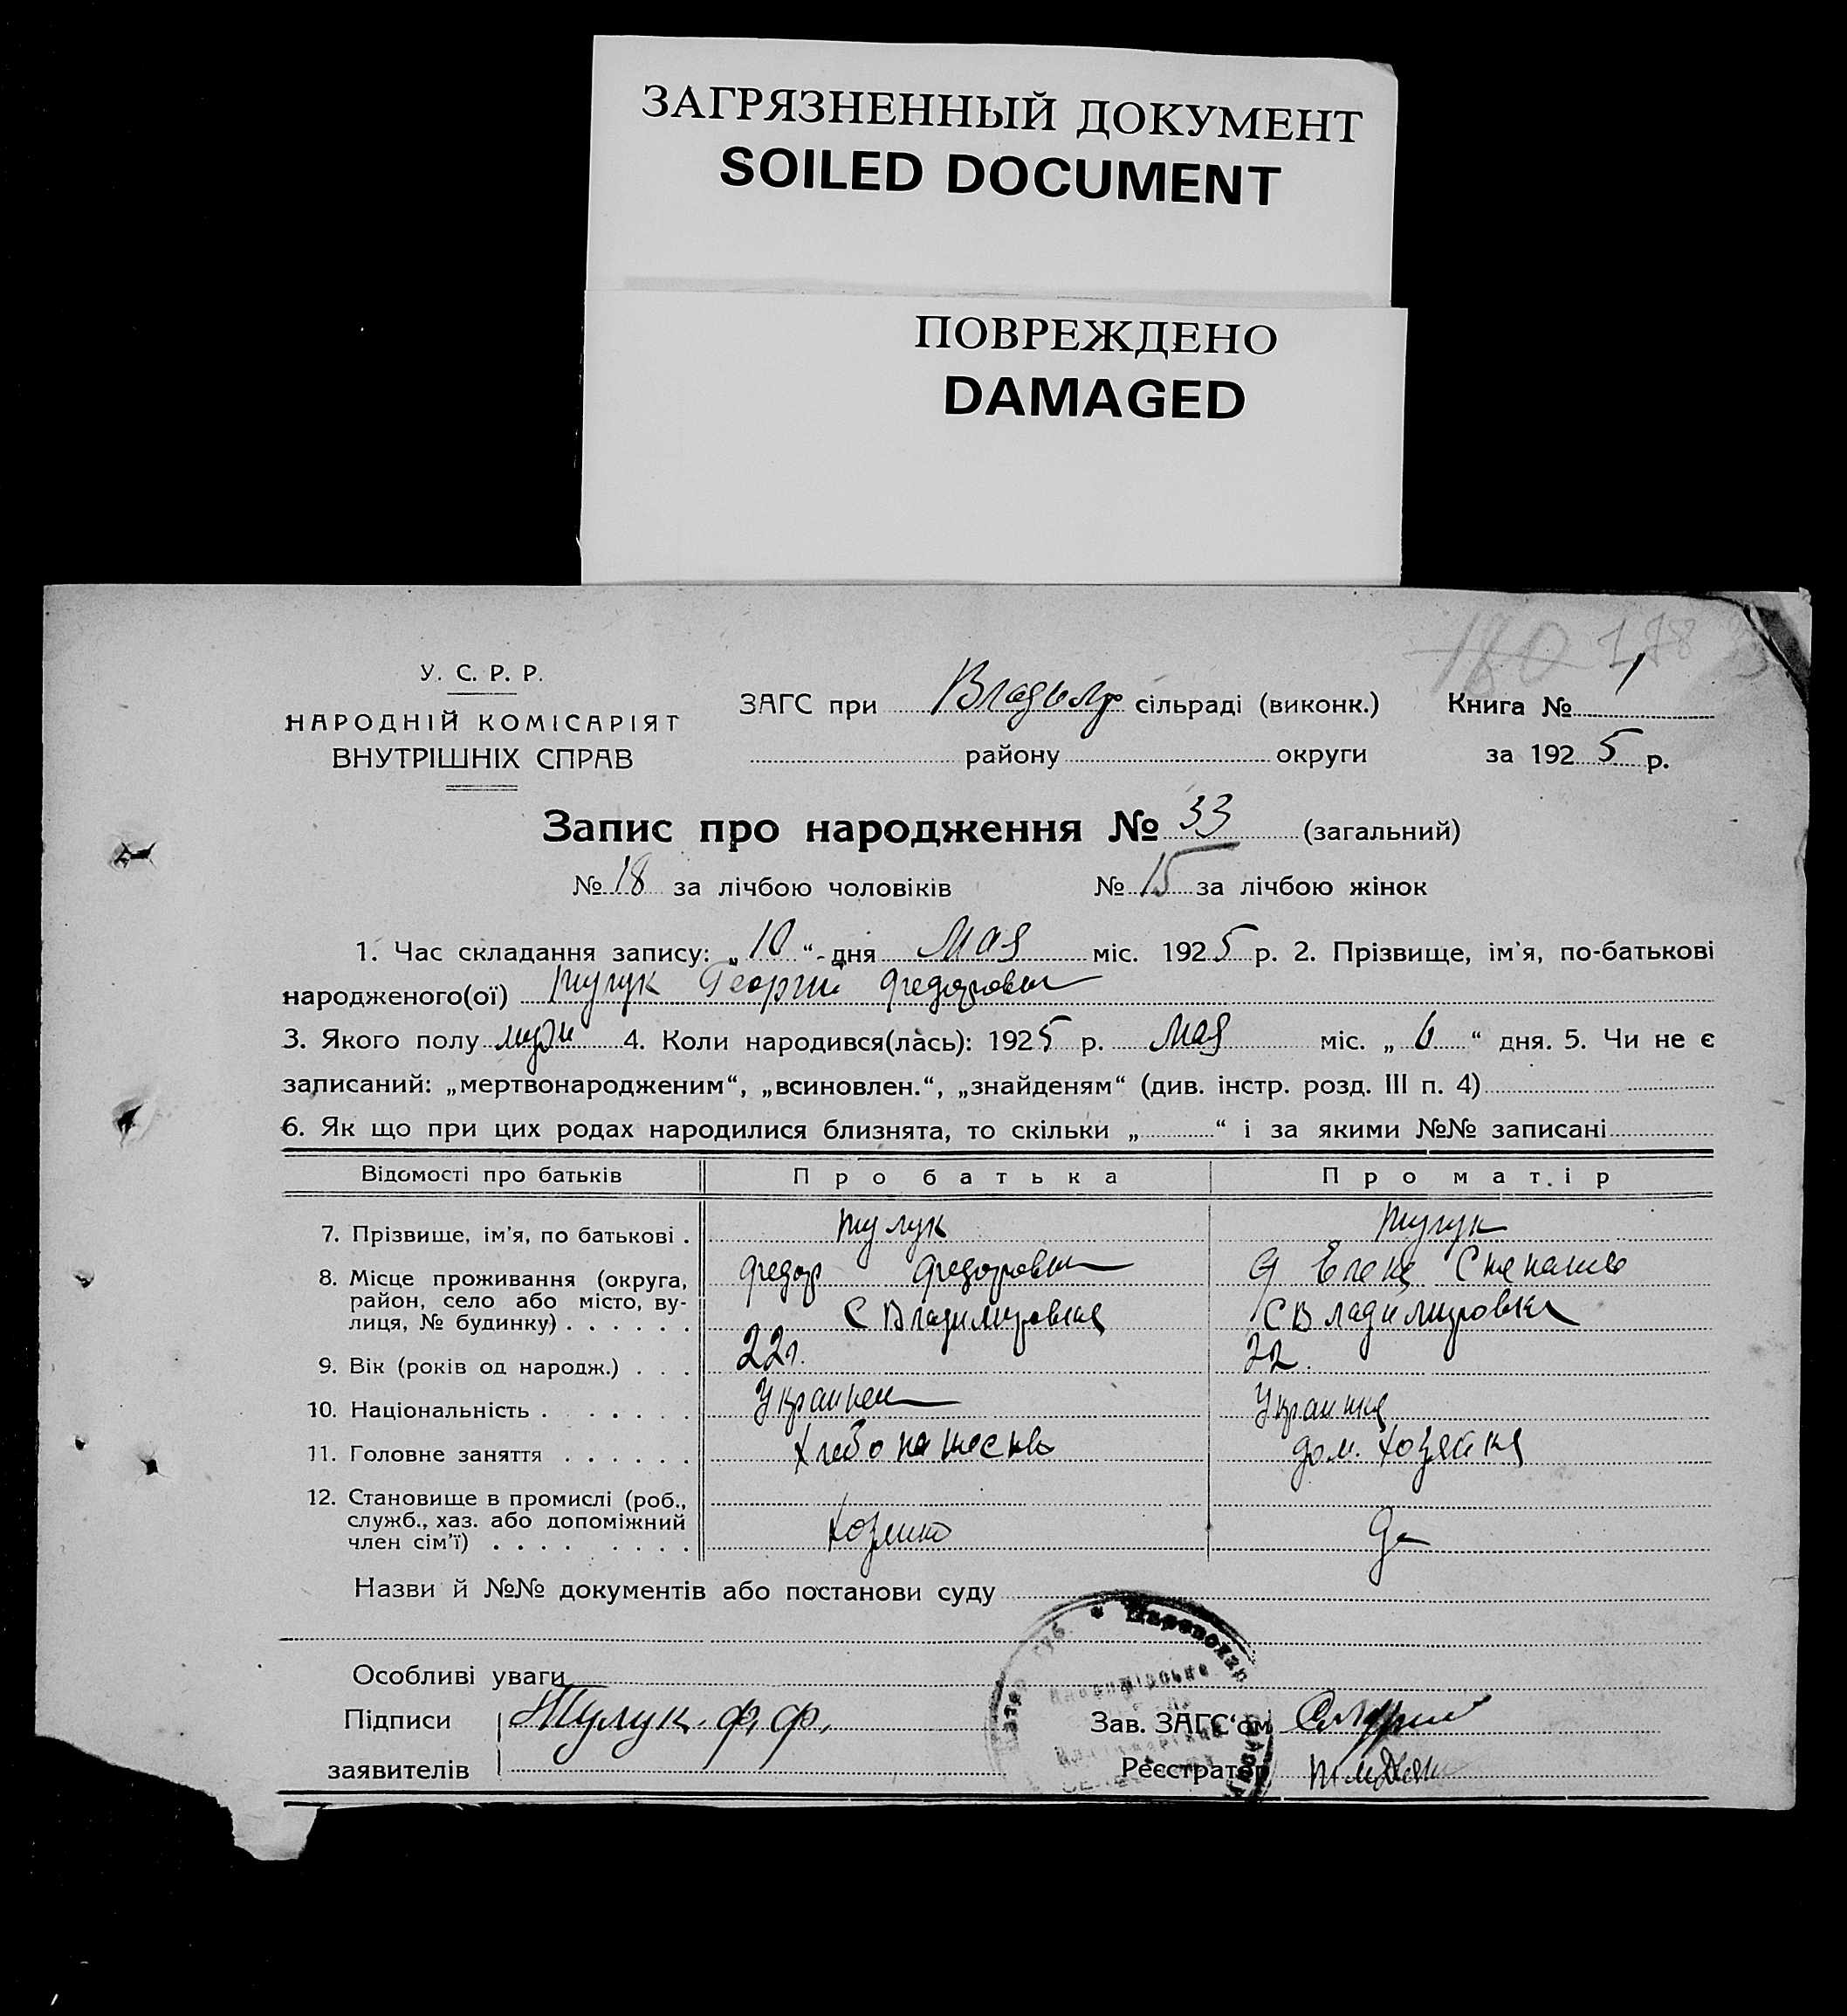 ЗАГРЯЗНЕННЫЙ ДОКУМЕНТ
SOILED DOCUMENT
ПОВРЕЖДЕНО
DAMAGED
180 178
У. С. Р. Р.
НАРОДНІЙ КОМІСАРІЯТ
ВНУТРІШНІХ СПРАВ
ЗАГС при Владимр сільраді (виконк.)
району округи
Книга № 1
за 1925 р.
Запис про народження № 33 (загальний)
№ 18 за лічбою чоловіків № 15 за лічбою жінок
1. Час складання запису: „10“ дня Мая міс. 1925 р. 2. Прізвище, ім'я, по-батькові
народженого(ої) Тулук Георгий Федорович
3. Якого полу муж 4. Коли народився(лась): 1925 р. Мая міс. „6“ дня. 5. Чи не є
записаний: „мертвонародженим“, „всиновлен.“, „знайденям“ (див. інстр. розд. III п. 4)
6. Як що при цих родах народилися близнята, то скільки „ “ і за якими №№ записані
Відомості про батьків Про батька Про матір
7. Прізвище, ім'я, по батькові . Тулук Тулук
8. Місце проживання (округа, Федор Федорович Елена
район, село або місто, ву-
лиця, № будинку) . . . . . . С Владимировка С Владимировка
9. Вік (років од народж.) . . . 22г. 22.
10. Національність . . . . . . . Украинец Украинка
11. Головне заняття . . . . . . Хлебопашество дом. хозяйка
12. Становище в промислі (роб.,
служб., хаз. або допоміжний
член сім'ї) . . . . . . . . Хозяин
Назви й №№ документів або постанови суду
Особливі уваги
Підписи Тулук. Ф. Ф. Зав. ЗАГС'ом
заявителів Реєстратор